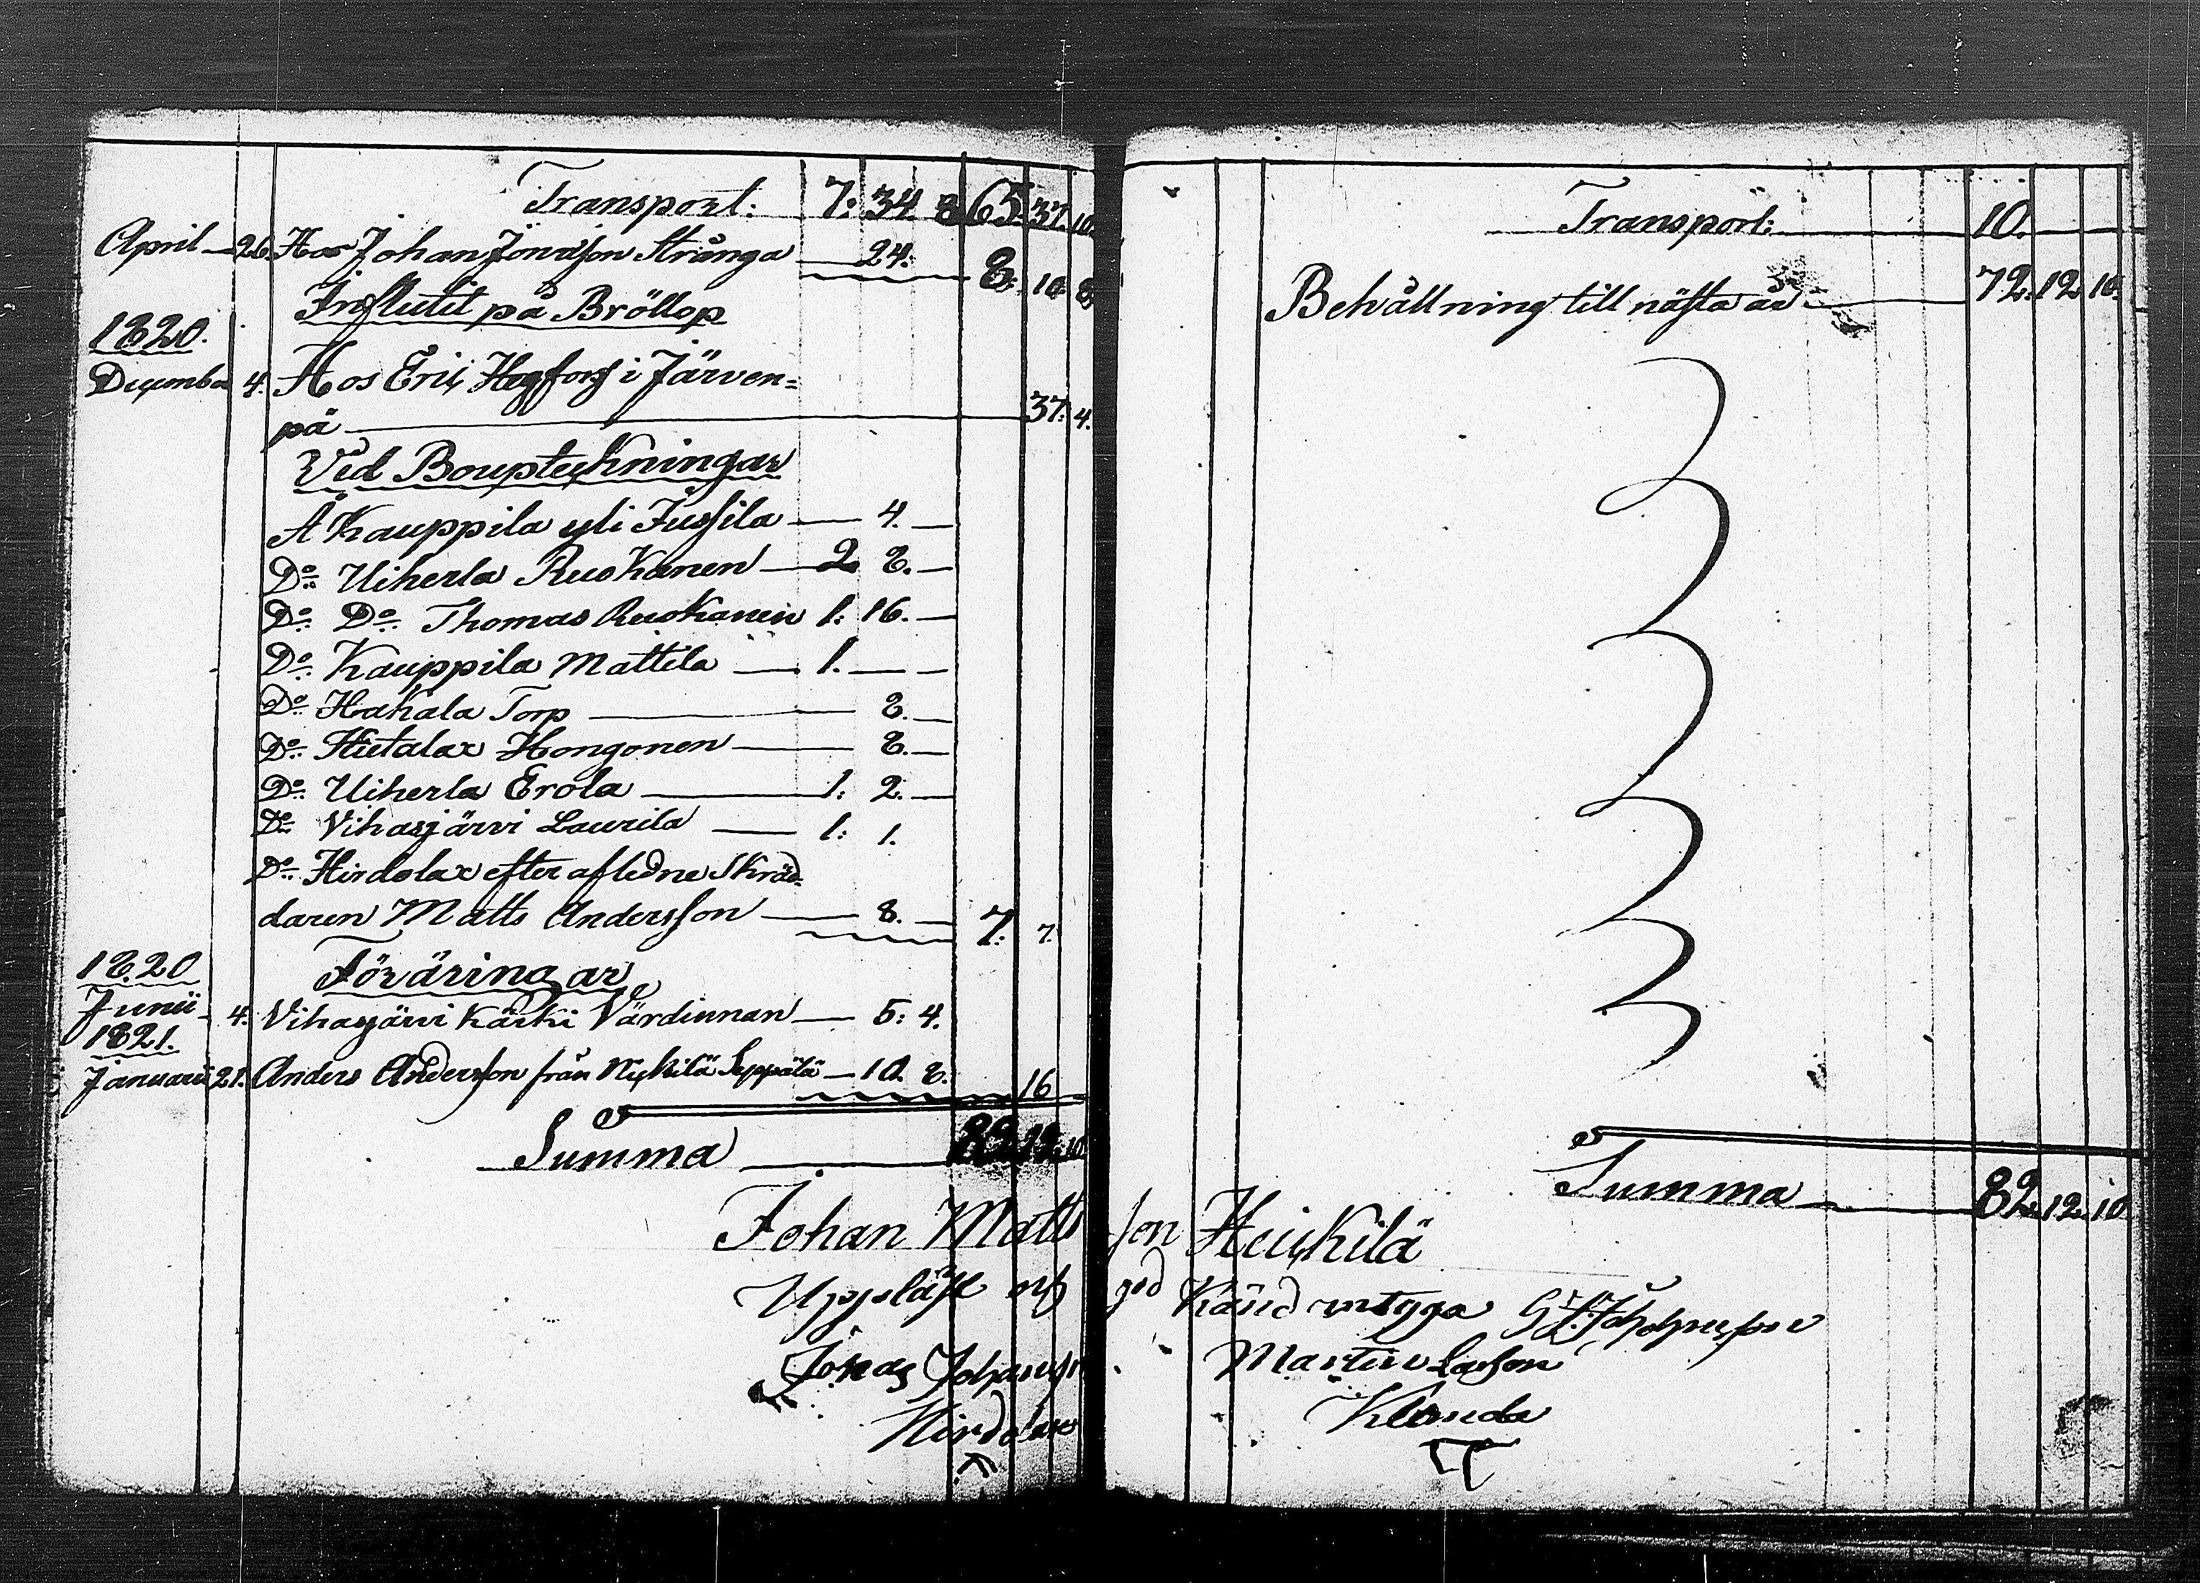 Transport: 7. 34. 8 65. 37. 10.
April 26. Hos Johan Jonasson Stränga 24. 8. 10. 8
Influtit på Bröllop
1820.
December 4. Hos Eric Hegfors i Järven=
pä 37. 4.
Ved Boupteckningar
Å Kauppila yli Jussila 4.
Do Uiherla Ruokanen 2. 8.
Do Do Thomas Ruokanen 1: 16.
Do Kauppila Mattila 1.
Do Hakala Torp 8.
Do Hietalax Hongonen 8.
Do Uiherla Erola 1: 2.
Do Vihasjärvi Laurila 1: 1.
Do Hirdolax efter afledne Skräd=
daren Matts Andersson 8. 7. 7.
1820
Junii 4. Föräringar
Vihasjärvi Kärki Värdinnan 5: 4.
1821.
Januarii 21. Anders Andersson från Nickilä Seppälä 10. 8. 16
Summa 82. 12. 10
Transport: 10.
Behållning till nästa år 72. 12. 10.
Summa 82. 12. 10
Johan Mattsson Heickilä
Uppläst och god Känd
Jonas Johansson Martin Larson
Hirdolax